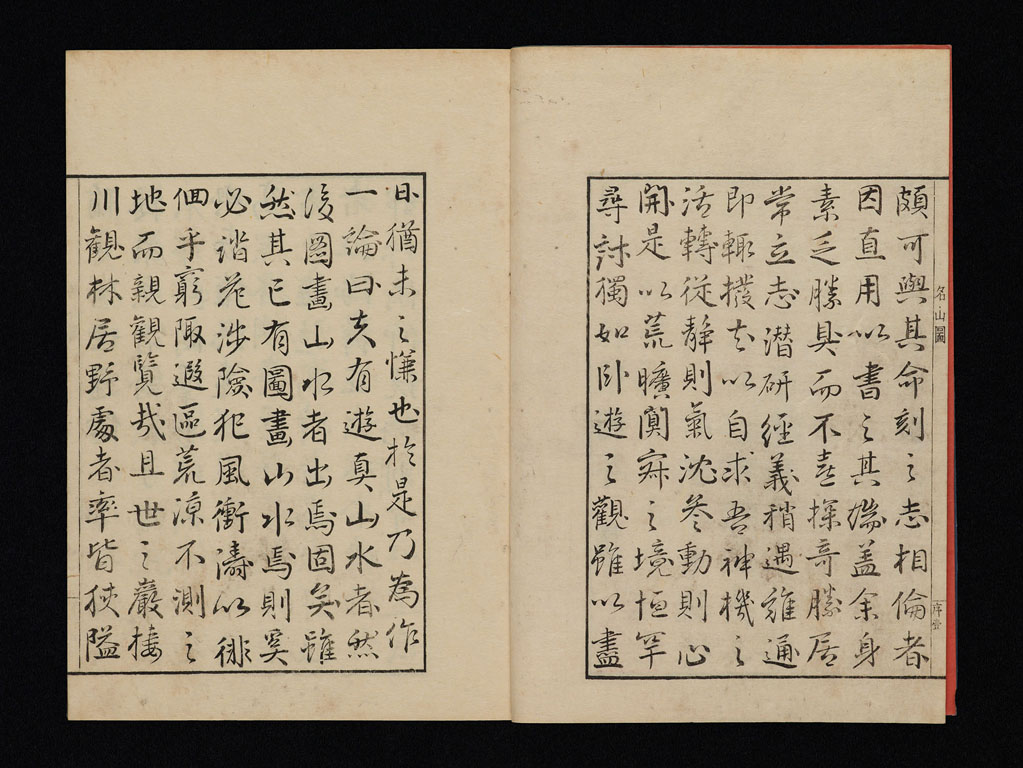 頗可與其命刻之志相倫者
因直用以書之其端蓋余身
素乏勝具而不喜探奇勝居
常立志潜研經義稍遇難通
即輙撥去以自求吾神機之
活轉從静則氣沈叅動則心
開是以荒曠闃寂之境恒罕
尋討獨如卧遊之觀雖以盡
日猶未之慊也於是乃為作
一論曰夫有遊真山水者然
後圖畫山水者出焉固矣雖
然其已有圖畫山水焉則奚
必踏危涉險犯風衝濤以徘
徊乎窮陬遐區荒凉不測之
地而親觀覽哉且世之巖棲
川觀林居野處者率皆狹隘
名山圖
序壹